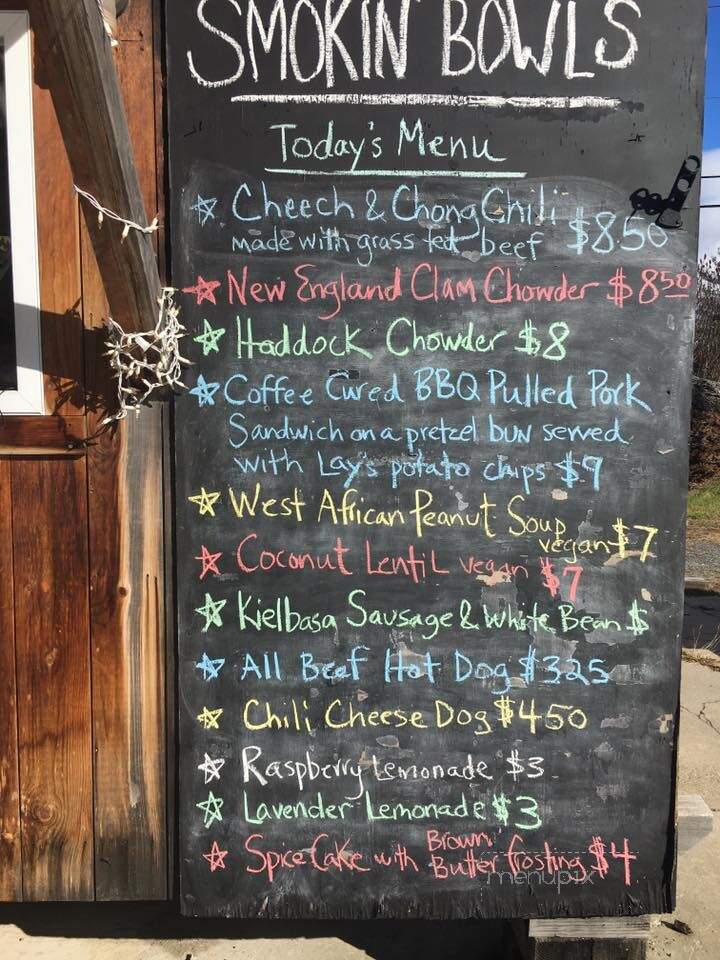 SMOKIN' BOWLS
Today's Menu
Cheech & Chong Chili
made with grass fed beef $8.50
New England Clam Chowder $8 50
Haddock Chowder $8
Coffee Cured BBQ Pulled Pork
Sandwich on a pretzel bun served
with Lay's potato chips $9
West African Peanut Soup
vegan $7
Coconut Lentil vegan $7
Kielbasa Sausage & White Bean $
All Beef Hot Dog $325
Chili Cheese Dog $450
Raspberry Lemonade $3
Lavender Lemonade $3
Spice Cake with Brown
Butter frosting $4
menupix